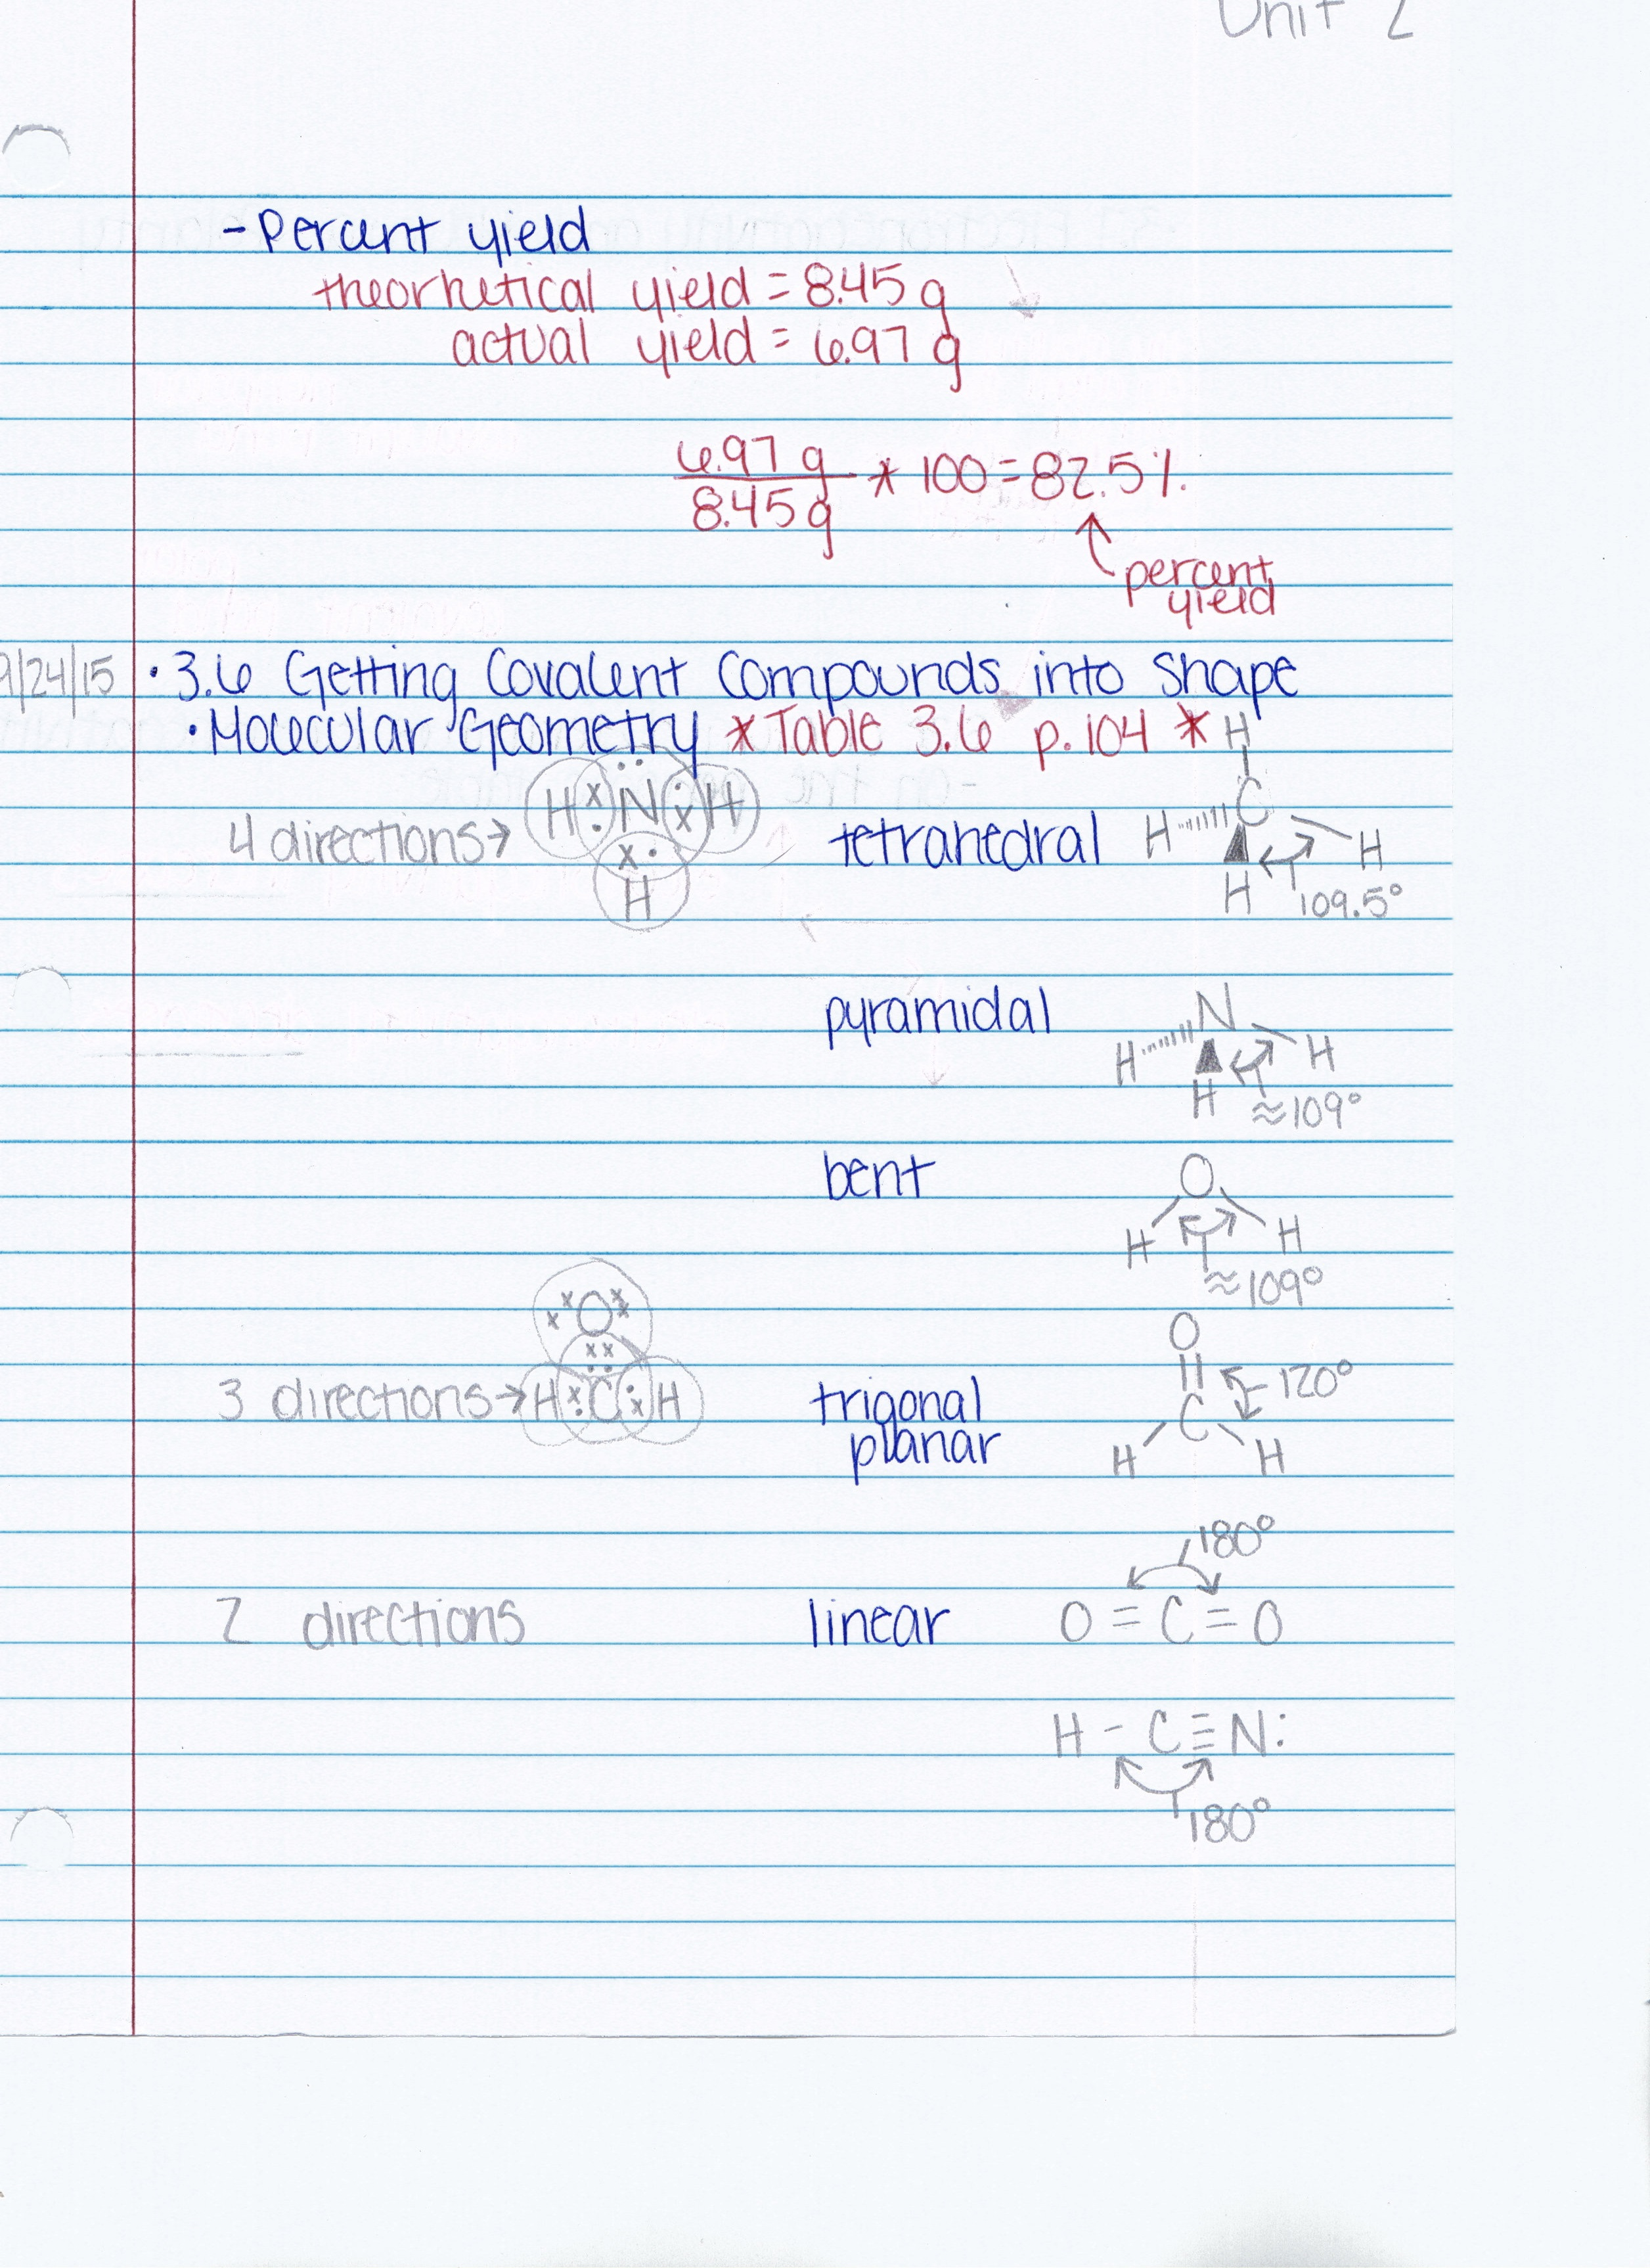 Unit 2
- Percent yield
theorhetical yield = 8.45 g
actual yield = 6.97 g
6.97 g
8.45 g
* 100 = 82.5%
percent
yield
9/24/15 • 3.6 Getting Covalent Compounds into Shape
• Molecular Geometry * Table 3.6 p. 104 *
4 directions → H N H
H
tetrahedral
H
H C H
H
109.5°
pyramidal
N
H H
H
≈109°
bent
O
H H
≈109°
3 directions →
O
H C H
trigonal
planar
O
C
H H
120°
2 directions
linear
180°
O = C = O
H - C ≡ N:
180°